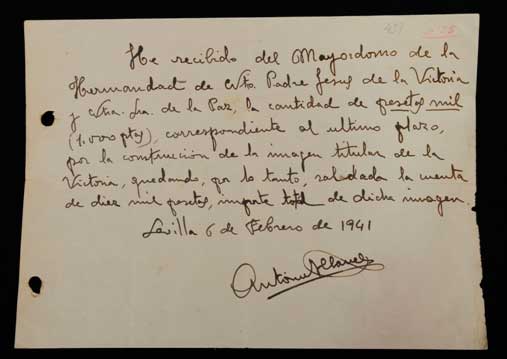 He recibido del Mayordomo de la
Hermandad de Ntro. Padre Jesus de la Victoria
y Ntra. Sra. de la Paz la cantidad de pesetas mil
(1.000 pts), correspondiente al ultimo plazo,
por la construcción de la imagen titular de la
Victoria, quedando, por lo tanto, saldada la cuenta
de diez mil pesetas, importe total de dicha imagen.
Sevilla 6 de Febrero de 1941
Antonio Illanes